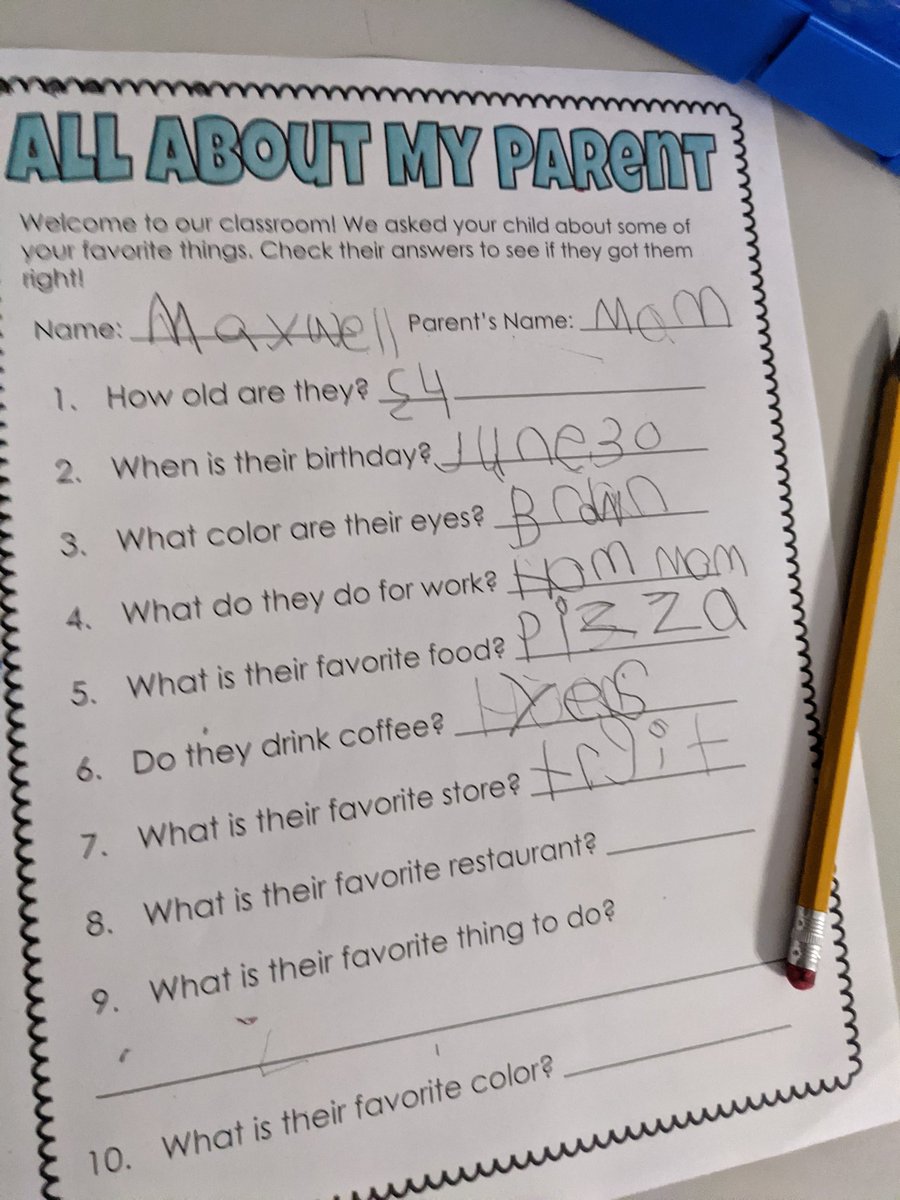 ALL ABOUT MY PARENT
Welcome to our classroom! We asked your child about some of
your favorite things. Check their answers to see if they got them
right!
Name: Maxwell Parent's Name: Mom
1. How old are they? 54
2. When is their birthday? June 30
3. What color are their eyes?
4. What do they do for work? Hom Mom
5. What is their favorite food? Pizza
6. Do they drink coffee?
7. What is their favorite store?
8. What is their favorite restaurant?
9. What is their favorite thing to do?
10. What is their favorite color?